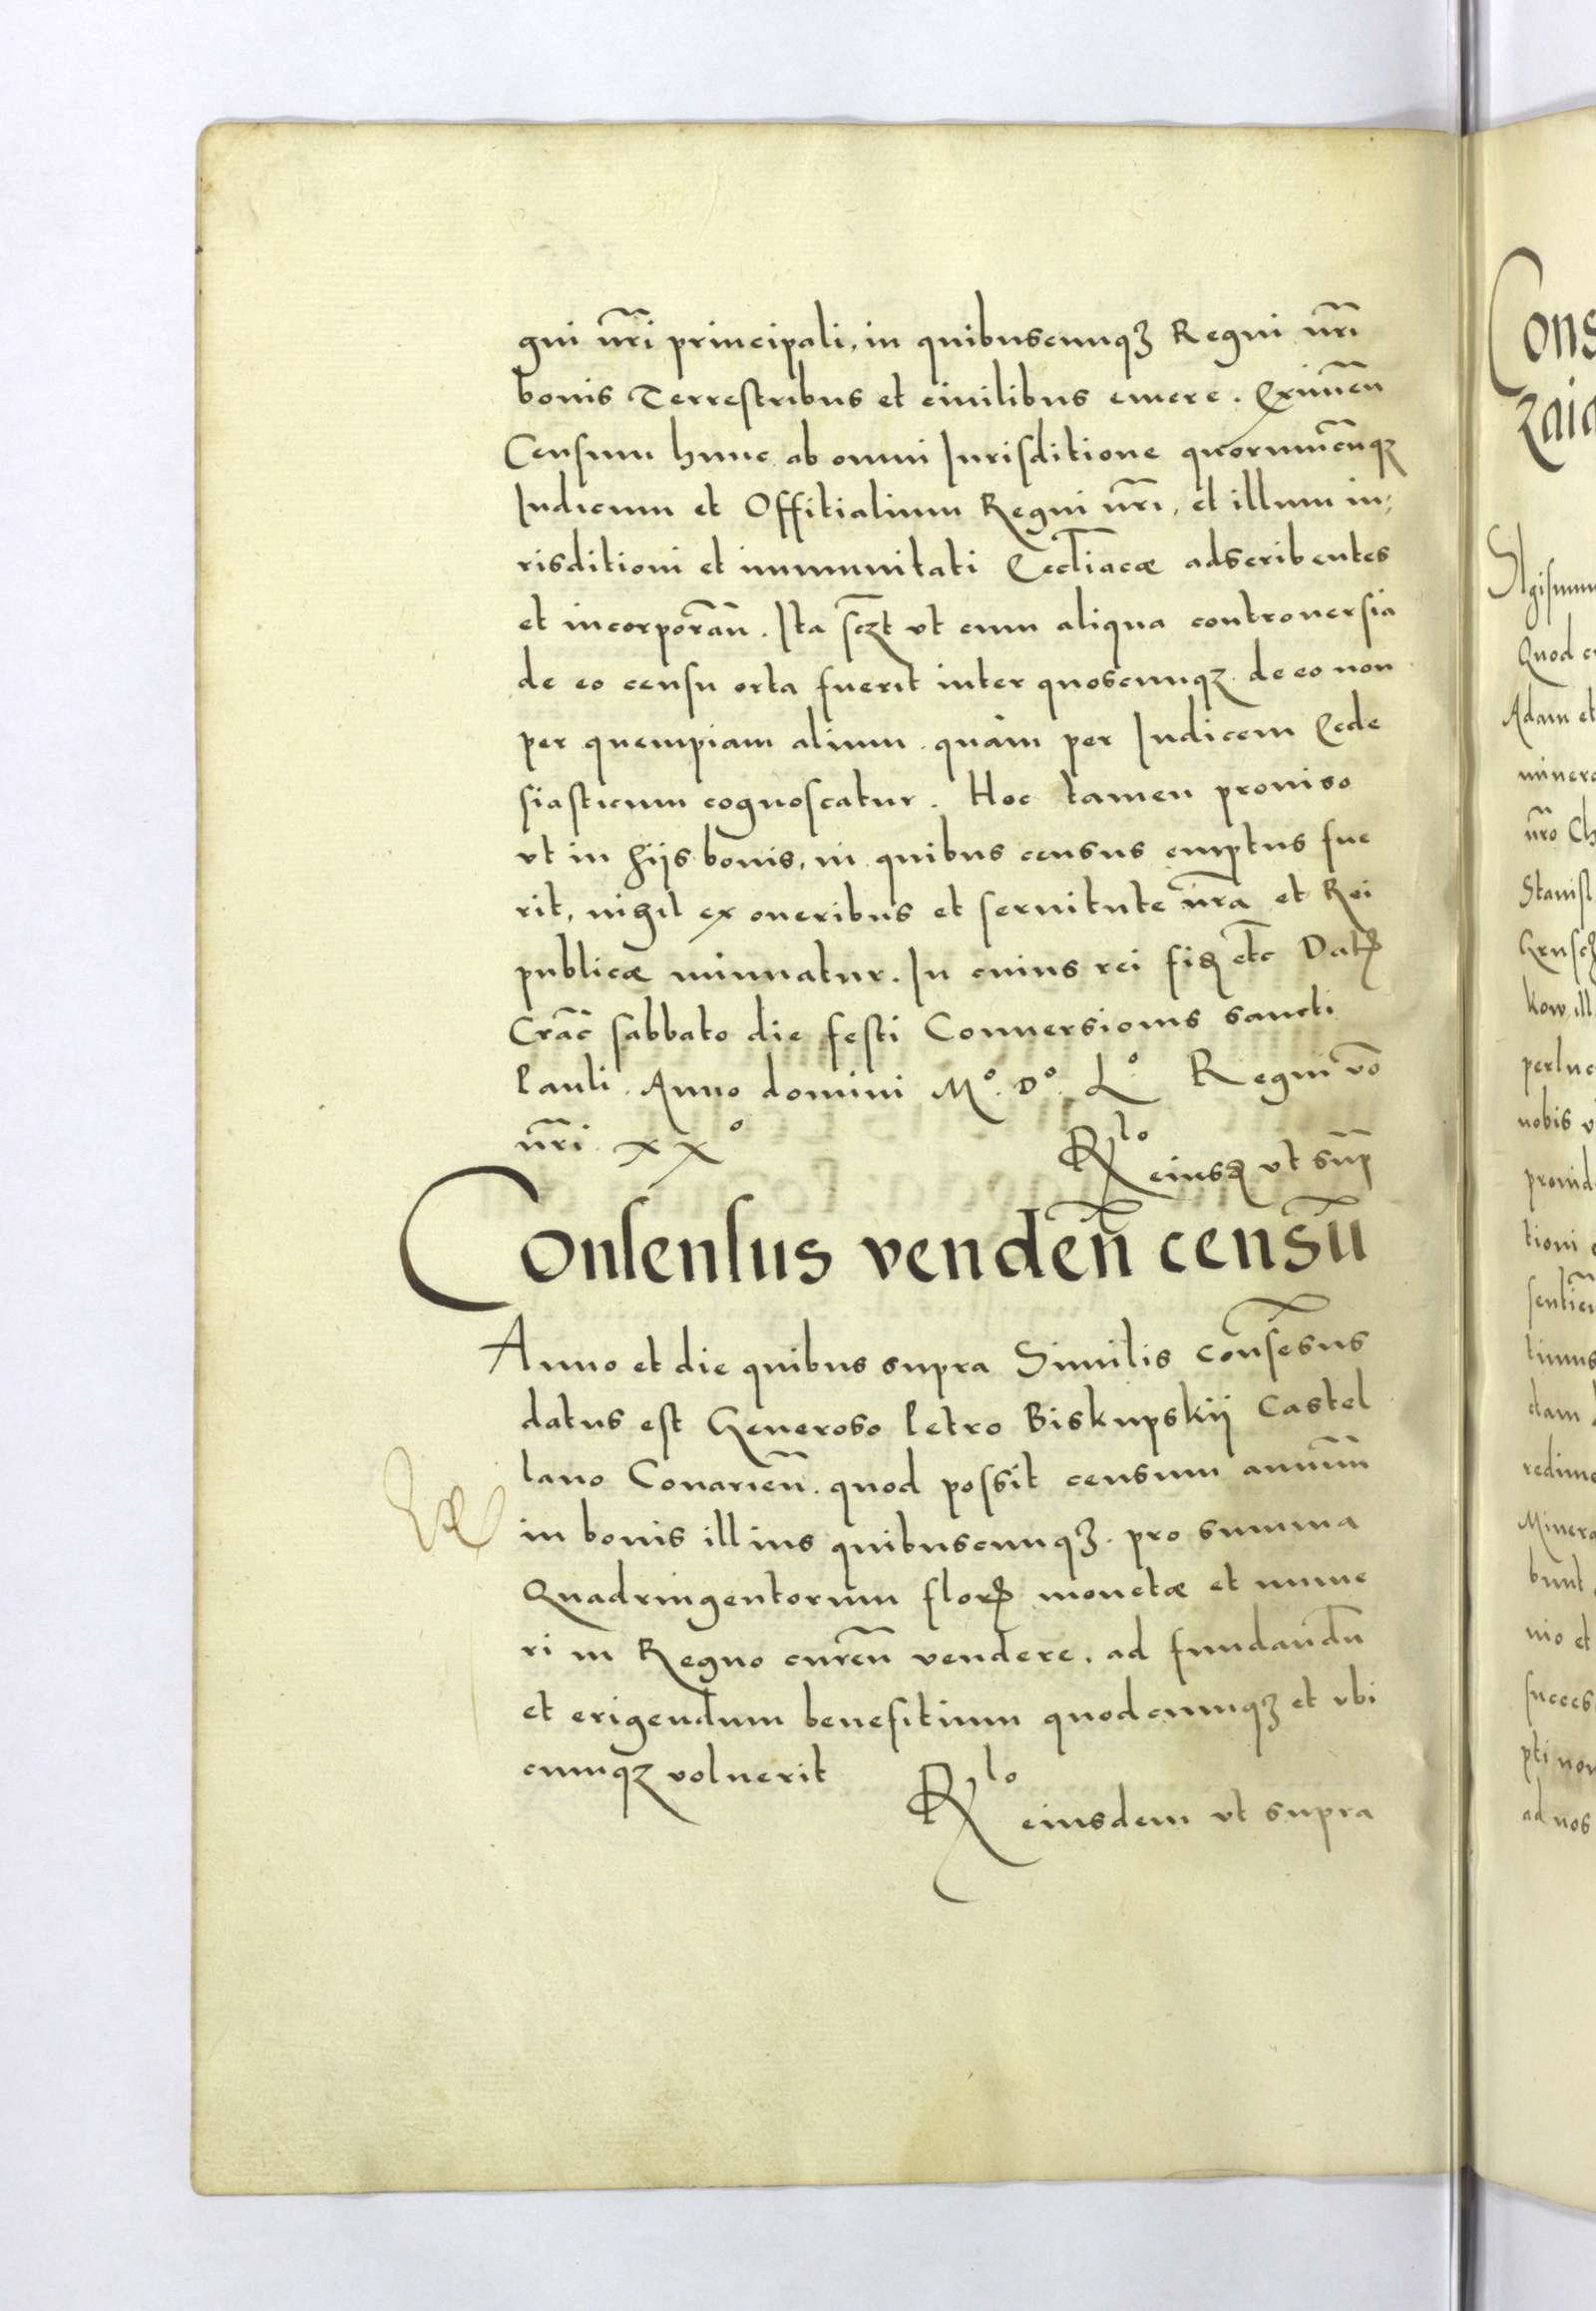 gni nr̃i principali, in quibuscunqꝫ Regni nr̃i
bonis Terrestribus et ciuilibus emere. Eximeñ
Censum hunc ab omni Jurisditione quorumcũqꝫ
Judicum et Offitialium Regni nr̃i, et illum iu,
risditioni et immunitati Eccl̃iacæ adscribentes
et incorporãñ. Ita scꝫt vt cum aliqua controuersia
de eo censu orta fuerit inter quoscunqꝫ de eo non
per quempiam alium quàm per Judicem Eccle
siasticum cognoscatur. Hoc tamen prouiso
vt in hijs bonis, in quibus census emptus fue
rit, nihil ex oneribus et seruitute nr̃a et Rei
publicæ minuatur. In cuius rei fiꝫ etc̃ Datꝫ
Crãc̃ sabbato die festi Conuersionis sancti
Pauli. Anno domini Mº. Dº. Lº. Regni võ
nr̃i xxº
Rlo eiusꝫ vt sup̃
Consensus vendeñ censũ
Anno et die quibus supra Similis consẽsus
datus est Generoso Petro Biskupskij Castel
lano Conarieñ. quod possit censum annuũ
in bonis illius quibuscunqꝫ. pro summa
Quadringentorum florꝫ monetæ et nume
ri in Regno cureñ vendere, ad fundandũ
et erigendum benefitium quodcunqꝫ et vbi
cunqꝫ voluerit
Rlo eiusdem vt supra
Cons
Sigismun
Quod c
Adam et
minera
nr̃o Ch
Stanisl
kow, ill
nobis v
prouid
tioni
dam
redime
Minera
bunt
nio et
succes
pti non
ad nos